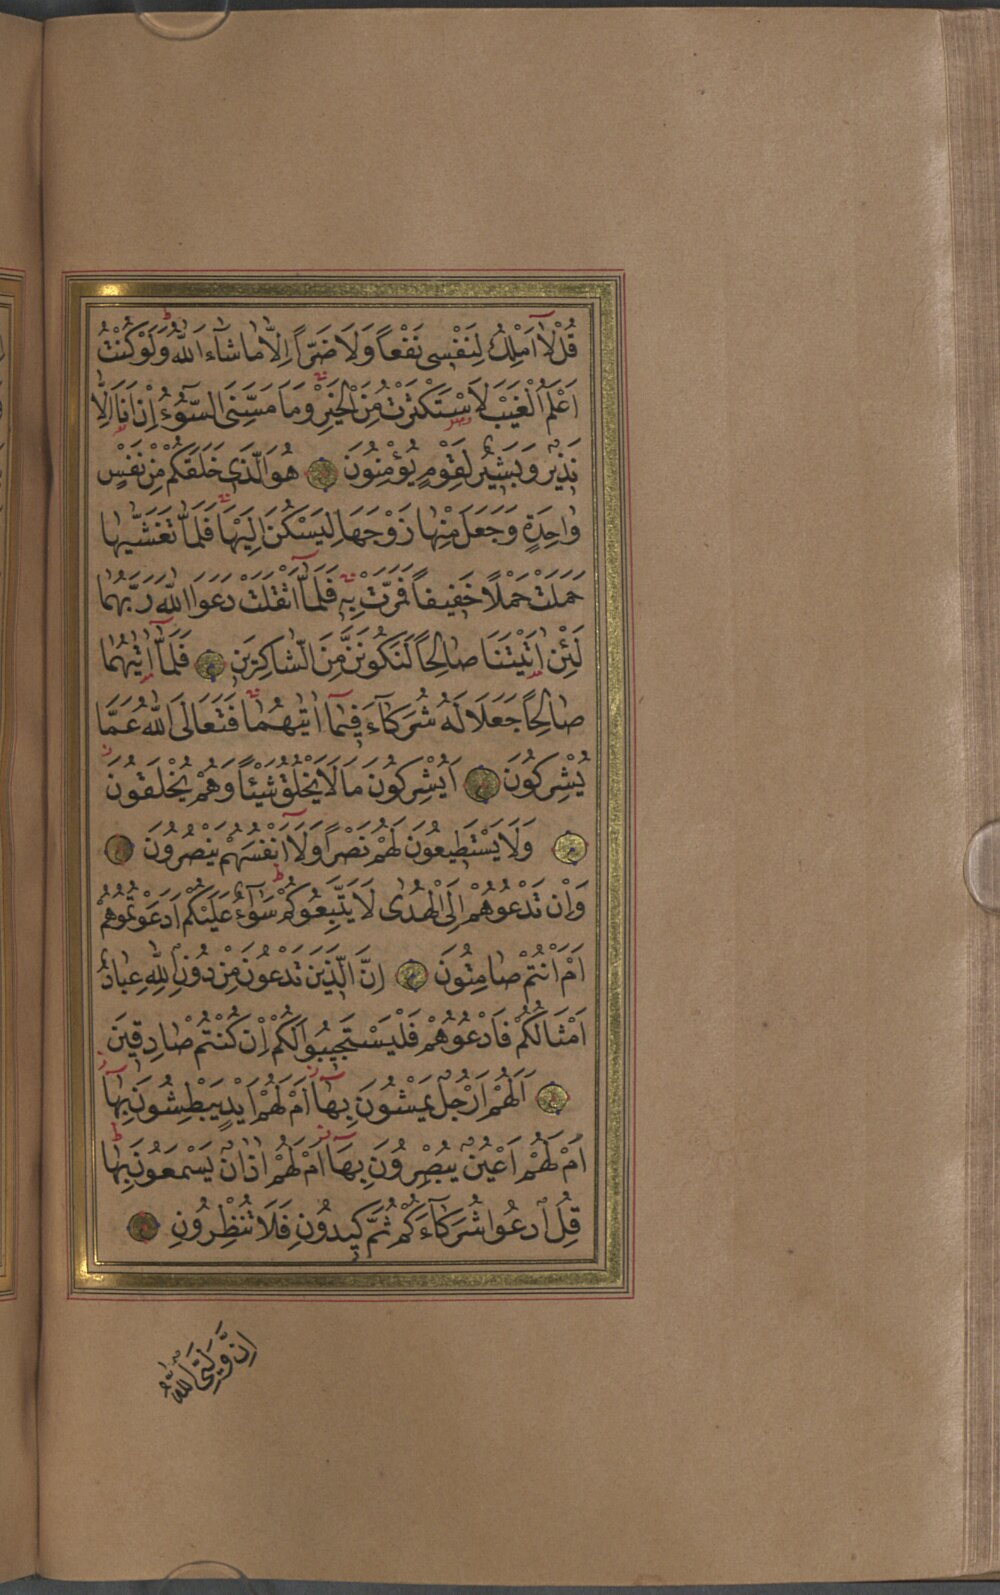 قُلْ لَٓا اَمْلِكُ لِنَفْسٖى نَفْعاً وَلَا ضَرّاً اِلَّا مَا شَٓاءَ اللّٰهُ وَلَوْ كُنْتُ
اَعْلَمُ الْغَيْبَ لَاسْتَكْثَرْتُ مِنَ الْخَيْرِ وَمَا مَسَّنِىَ السُّٓوءُ اِنْ اَنَا اِلَّا
نَذٖيرٌ وَبَشٖيرٌ لِقَوْمٍ يُؤْمِنُونَ هُوَ الَّذٖى خَلَقَكُمْ مِنْ نَفْسٍ
وَاحِدَةٍ وَجَعَلَ مِنْهَا زَوْجَهَا لِيَسْكُنَ اِلَيْهَا فَلَمَّا تَغَشّٰيهَا
حَمَلَتْ حَمْلًا خَفٖيفاً فَمَرَّتْ بِهٖ فَلَمَّٓا اَثْقَلَتْ دَعَوَا اللّٰهَ رَبَّهُمَا
لَئِنْ اٰتَيْتَنَا صَالِحاً لَنَكُونَنَّ مِنَ الشَّاكِرٖينَ فَلَمَّٓا اٰتٰيهُمَا
صَالِحاً جَعَلَا لَهُ شُرَكَٓاءَ فٖيمَٓا اٰتٰيهُمَا فَتَعَالَى اللّٰهُ عَمَّا
يُشْرِكُونَ اَيُشْرِكُونَ مَا لَا يَخْلُقُ شَيْـٔاً وَهُمْ يُخْلَقُونَ
وَلَا يَسْتَطٖيعُونَ لَهُمْ نَصْراً وَلَٓا اَنْفُسَهُمْ يَنْصُرُونَ
وَاِنْ تَدْعُوهُمْ اِلَى الْهُدٰى لَا يَتَّبِعُوكُمْ سَوَٓاءٌ عَلَيْكُمْ اَدَعَوْتُمُوهُمْ
اَمْ اَنْتُمْ صَامِتُونَ اِنَّ الَّذٖينَ تَدْعُونَ مِنْ دُونِ اللّٰهِ عِبَادٌ
اَمْثَالُكُمْ فَادْعُوهُمْ فَلْيَسْتَجٖيبُوا لَكُمْ اِنْ كُنْتُمْ صَادِقٖينَ
اَلَهُمْ اَرْجُلٌ يَمْشُونَ بِهَٓا اَمْ لَهُمْ اَيْدٍ يَبْطِشُونَ بِهَٓا
اَمْ لَهُمْ اَعْيُنٌ يُبْصِرُونَ بِهَٓا اَمْ لَهُمْ اٰذَانٌ يَسْمَعُونَ بِهَا
قُلِ ادْعُوا شُرَكَٓاءَكُمْ ثُمَّ كٖيدُونِ فَلَا تُنْظِرُونِ
اِنَّ وَلِيِّىَ اللّٰهُ